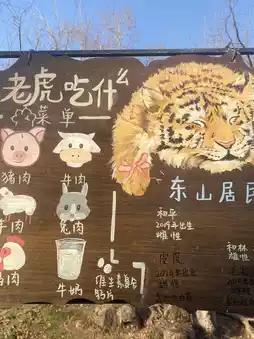 老虎吃什么
菜单
猪肉
牛肉
羊肉
兔肉
鸡肉
牛奶
维生素复合
钙片
东山居民
和平
2019年出生
雄性
和林
雄性
皮皮
雌性